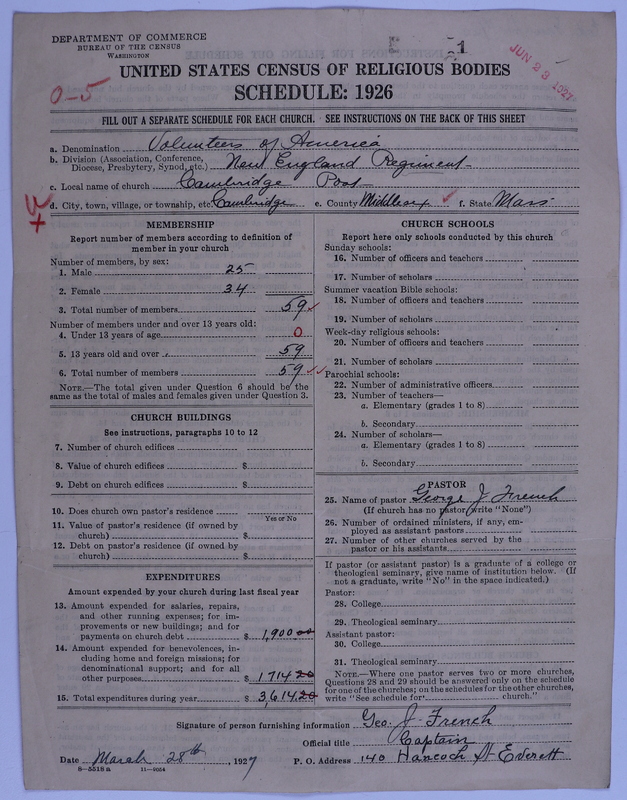 DEPARTMENT OF COMMERCE
BUREAU OF THE CENSUS
WASHINGTON
1
JUN 23 1927
UNITED STATES CENSUS OF RELIGIOUS BODIES
SCHEDULE: 1926
0-5
FILL OUT A SEPARATE SCHEDULE FOR EACH CHURCH. SEE INSTRUCTIONS ON THE BACK OF THIS SHEET
a. Denomination Volunteers of America
b. Division (Association, Conference, Diocese, Presbytery, Synod, etc.) New England Regiment
c. Local name of church Cambridge Post
d. City, town, village, or township, etc. Cambridge e. County Middlesex f. State Mass
MEMBERSHIP
Report number of members according to definition of
member in your church
Number of members, by sex:
1. Male 25
2. Female 34
3. Total number of members 59
Number of members under and over 13 years old:
4. Under 13 years of age 0
5. 13 years old and over 59
6. Total number of members 59
NOTE.—The total given under Question 6 should be the
same as the total of males and females given under Question 3.
CHURCH BUILDINGS
See instructions, paragraphs 10 to 12
7. Number of church edifices
8. Value of church edifices $
9. Debt on church edifices $
10. Does church own pastor's residence
Yes or No
11. Value of pastor's residence (if owned by
church) $
12. Debt on pastor's residence (if owned by
church) $
EXPENDITURES
Amount expended by your church during last fiscal year
13. Amount expended for salaries, repairs,
and other running expenses; for im-
provements or new buildings; and for
payments on church debt $ 1,900.00
14. Amount expended for benevolences, in-
cluding home and foreign missions; for
denominational support; and for all
other purposes $ 1714.20
15. Total expenditures during year $ 3,614.20
CHURCH SCHOOLS
Report here only schools conducted by this church
Sunday schools:
16. Number of officers and teachers
17. Number of scholars
Summer vacation Bible schools:
18. Number of officers and teachers
19. Number of scholars
Week-day religious schools:
20. Number of officers and teachers
21. Number of scholars
Parochial schools:
22. Number of administrative officers
23. Number of teachers—
a. Elementary (grades 1 to 8)
b. Secondary
24. Number of scholars—
a. Elementary (grades 1 to 8)
b. Secondary
PASTOR
25. Name of pastor George J. French
(If church has no pastor, write "None")
26. Number of ordained ministers, if any, em-
ployed as assistant pastors
27. Number of other churches served by the
pastor or his assistants
If pastor (or assistant pastor) is a graduate of a college or
theological seminary, give name of institution below. (If
not a graduate, write "No" in the space indicated.)
Pastor:
28. College
29. Theological seminary
Assistant pastor:
30. College
31. Theological seminary
NOTE.—Where one pastor serves two or more churches,
Questions 28 and 29 should be answered only on the schedule
for one of the churches; on the schedules for the other churches,
write "See schedule for church."
Signature of person furnishing information Geo. J. French
Official title Captain
Date March 28th, 1927 P. O. Address 140 Hancock St Everett
8—5518a 11—9054